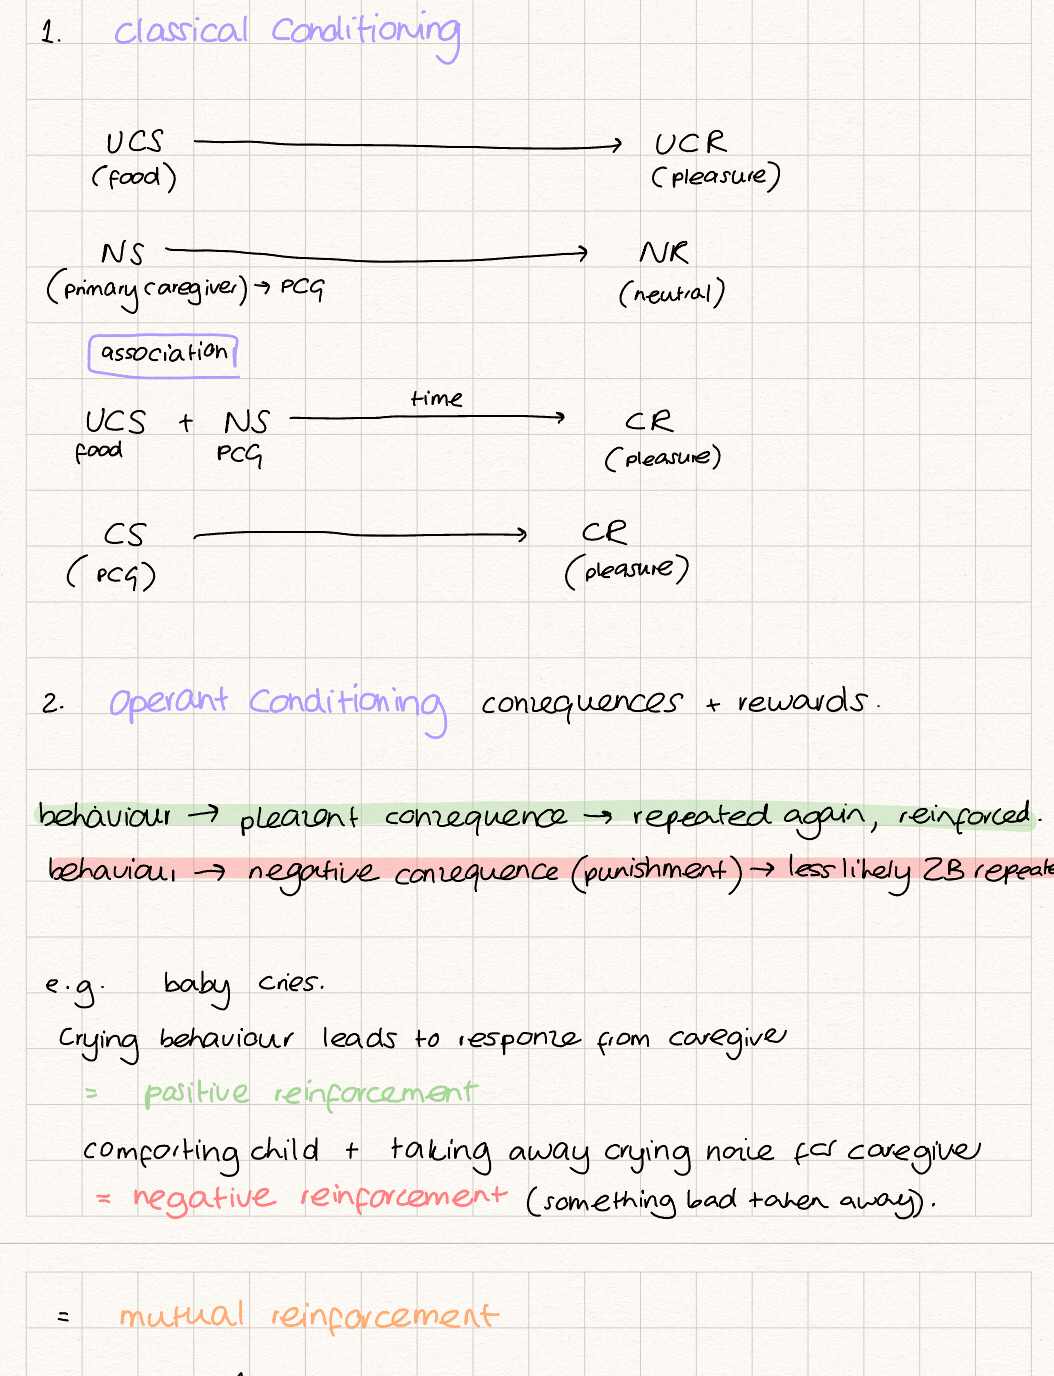 1. Classical Conditioning
UCS → UCR
(food) (pleasure)
NS → NR
(primary caregiver) → PCG (neutral)
association
time
UCS + NS → CR
food PCG (pleasure)
CS → CR
(PCG) (pleasure)
2. Operant Conditioning consequences + rewards.
behaviour → pleasant consequence → repeated again, reinforced.
behaviour → negative consequence (punishment) → less likely 2B repeate
e.g. baby cries.
Crying behaviour leads to response from caregiver
= positive reinforcement
comforting child + taking away crying noise for caregiver
= negative reinforcement (something bad taken away).
= mutual reinforcement